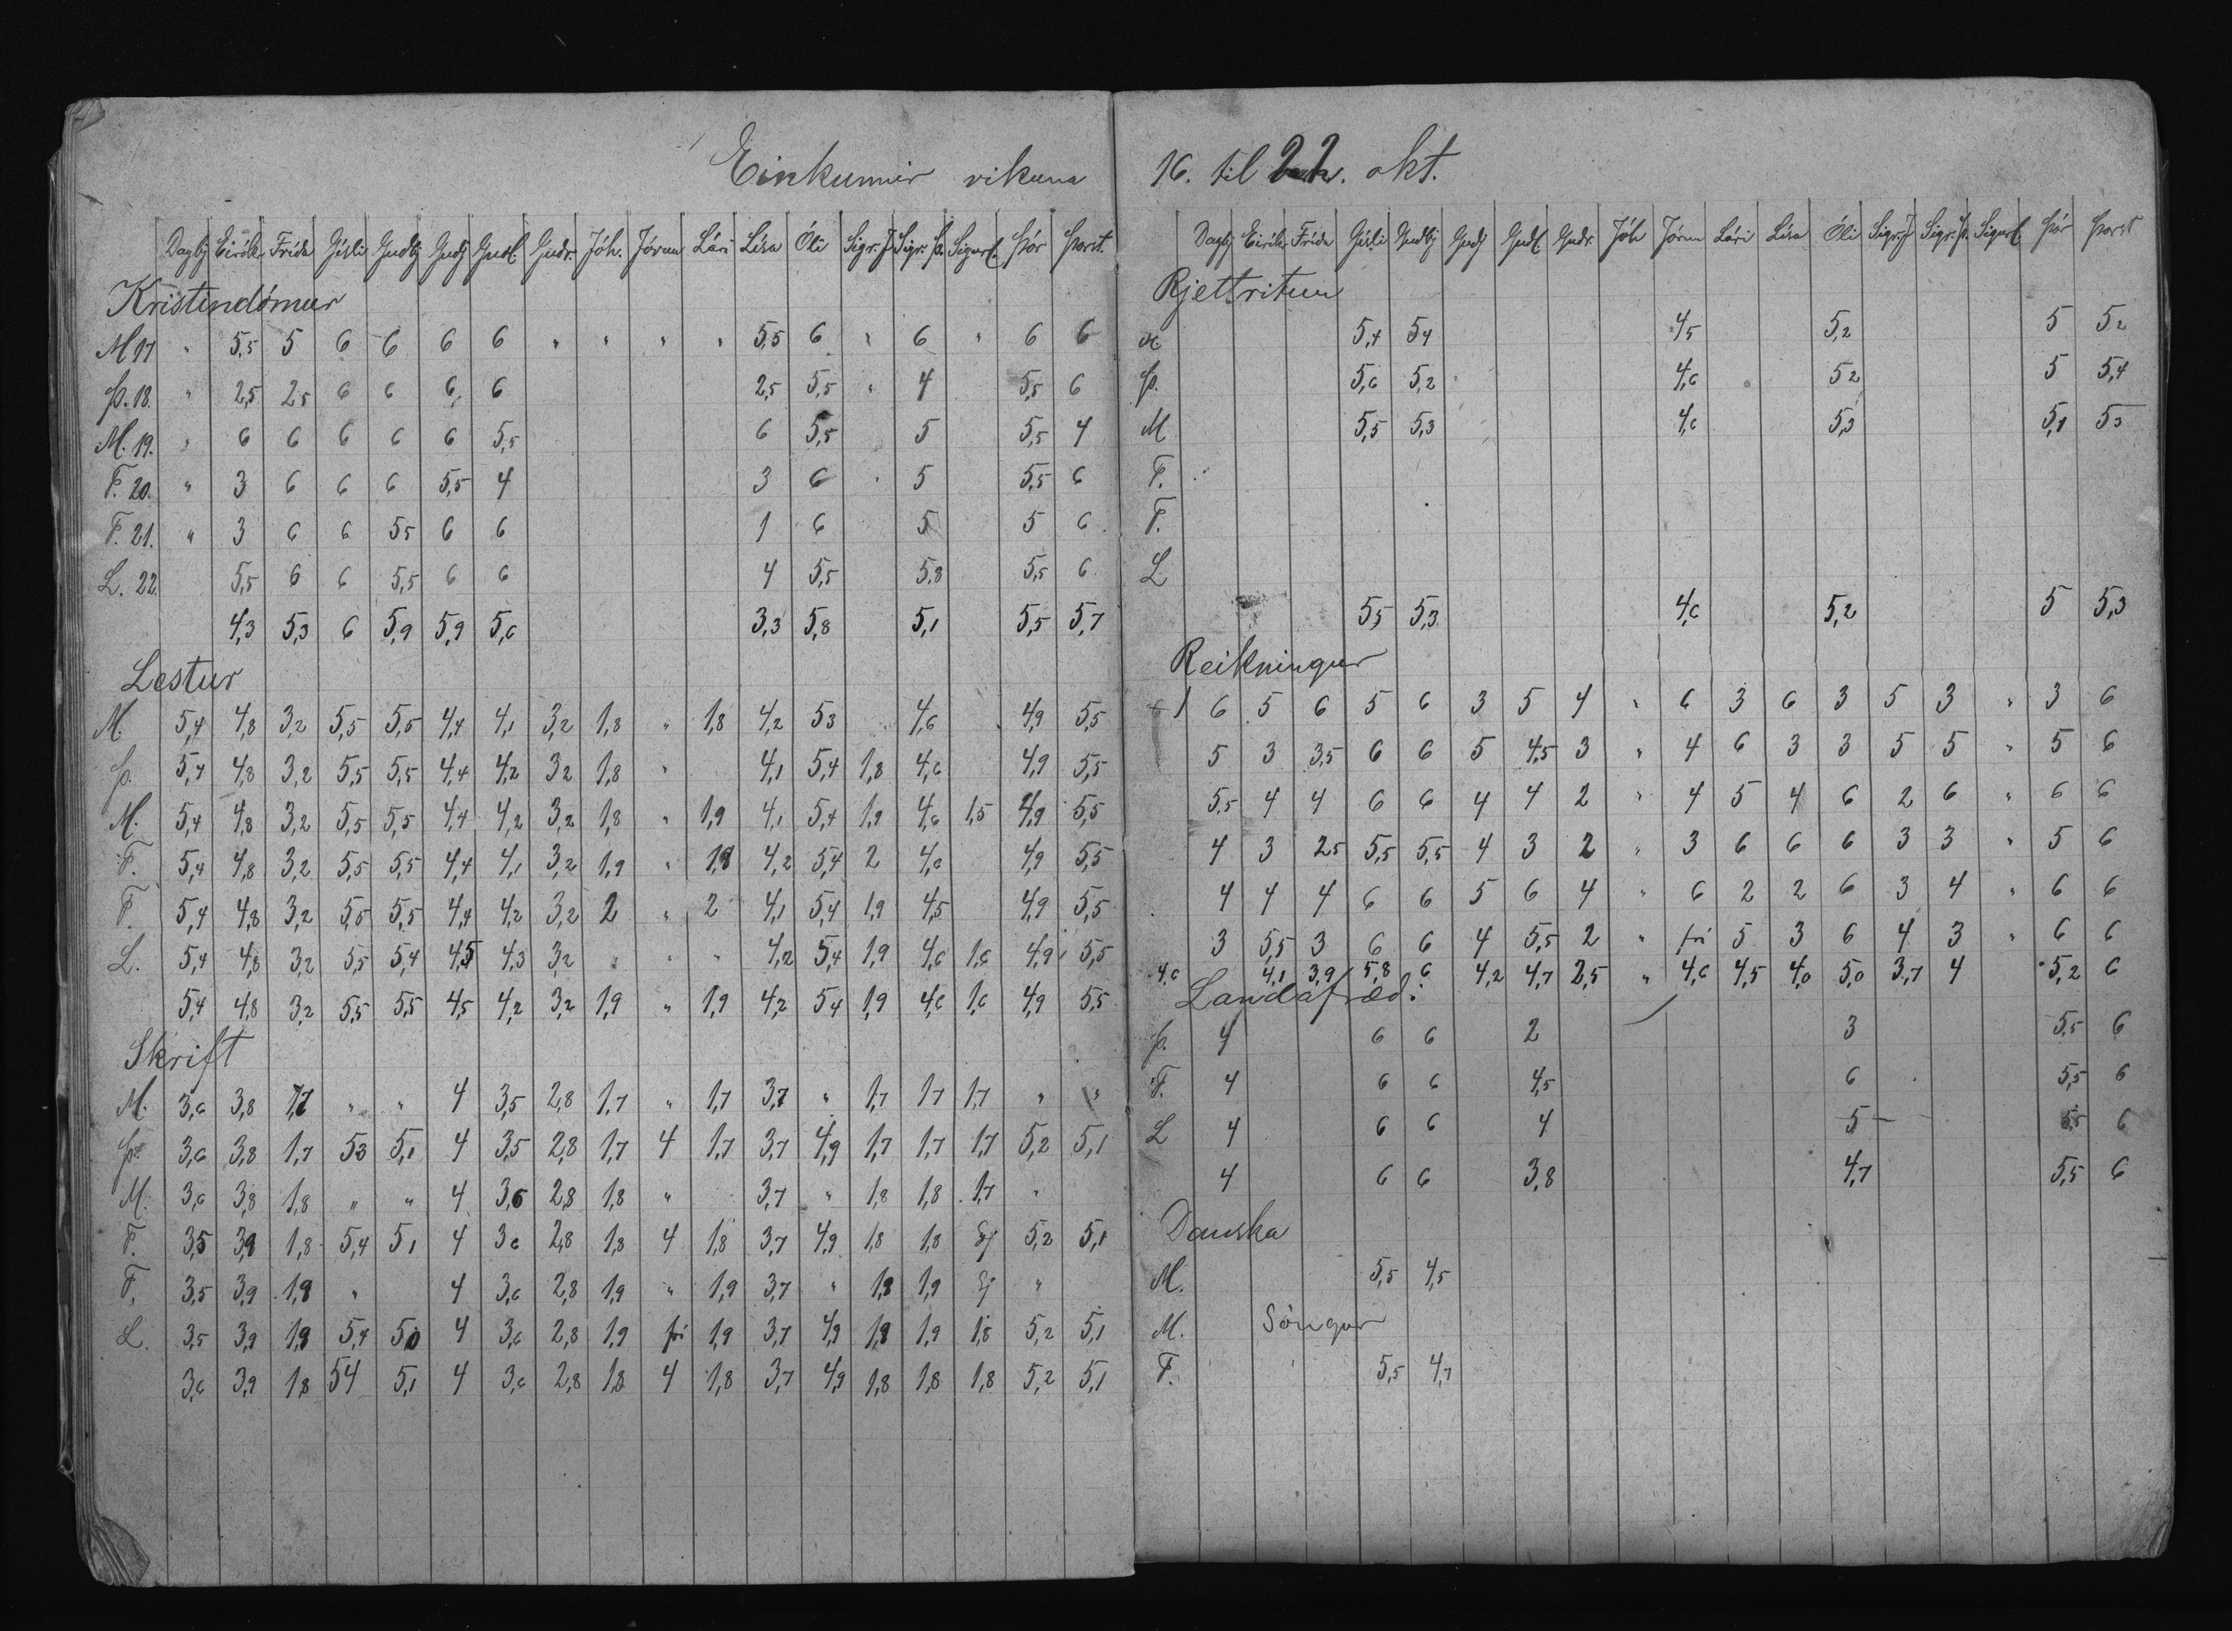 Einkunnir vikuna
Dagbj Eirík. Frída Gísli Gudbj Gudj Gudl. Gudr. Jóh. Jórun Lári Lára Óli Sigr. J Sigr. Þ. Sigurl. Þór Þorst.
Kristindómur
M 17 " 5,5 5 6 6 6 6 " " " " 5,5 6 " 6 " 6 6
Þ. 18. " 2,5 2,5 6 6 6 6 2,5 5,5 " 4 5,5 6
M. 19. " 6 6 6 6 6 5,5 6 5,5 5 5,5 4
F. 20. " 3 6 6 6 5,5 4 3 6 5 5,5 6
F. 21. " 3 6 6 5,5 6 6 1 6 5 5 6
L. 22. 5,5 6 6 5,5 6 6 4 5,5 5,8 5,5 6
4,3 5,3 6 5,9 5,9 5,6 3,3 5,8 5,1 5,5 5,7
Lestur
M. 5,4 4,8 3,2 5,5 5,5 4,4 4,1 3,2 1,8 " 1,8 4,2 5,3 4,6 4,9 5,5
Þ. 5,4 4,8 3,2 5,5 5,5 4,4 4,2 3,2 1,8 " 4,1 5,4 1,8 4,6 4,9 5,5
M. 5,4 4,8 3,2 5,5 5,5 4,4 4,2 3,2 1,8 " 1,9 4,1 5,4 1,9 4,6 1,5 4,9 5,5
F. 5,4 4,8 3,2 5,5 5,5 4,4 4,1 3,2 1,9 " 1,8 4,2 5,4 2 4,6 4,9 5,5
F. 5,4 4,8 3,2 5,5 5,5 4,4 4,2 3,2 2 " 2 4,1 5,4 1,9 4,5 4,9 5,5
L. 5,4 4,8 3,2 5,5 5,4 4,5 4,3 3,2 " " " 4,2 5,4 1,9 4,6 1,6 4,9 5,5
5,4 4,8 3,2 5,5 5,5 4,5 4,2 3,2 1,9 " 1,9 4,2 5,4 1,9 4,6 1,6 4,9 5,5
Skrift
M. 3,6 3,8 1,7 " " 4 3,5 2,8 1,7 " 1,7 3,7 " 1,7 1,7 1,7 " "
Þ. 3,6 3,8 1,7 5,3 5,1 4 3,5 2,8 1,7 4 1,7 3,7 4,9 1,7 1,7 1,7 5,2 5,1
M. 3,6 3,8 1,8 " " 4 3,6 2,8 1,8 " 3,7 " 1,8 1,8 1,7 "
F. 3,5 3,9 1,8 5,4 5,1 4 3,6 2,8 1,8 4 1,8 3,7 4,9 1,8 1,8 Ej 5,2 5,1
F. 3,5 3,9 1,8 " 4 3,6 2,8 1,9 " 1,9 3,7 " 1,8 1,9 Ej "
L. 3,5 3,9 1,8 5,4 5,0 4 3,6 2,8 1,9 frí 1,9 3,7 4,9 1,8 1,9 1,8 5,2 5,1
3,6 3,9 1,8 5,4 5,1 4 3,6 2,8 1,8 4 1,8 3,7 4,9 1,8 1,8 1,8 5,2 5,1
16. til 22. okt.
Dagbj Eirík Frída Gísli Gudbj Gudj Gudl Gudr. Jóh Jórun Lári Lára Óli Sigr. J Sigr. Þ. Sigurl Þór Þorst
Rjettritun
M. 5,4 5,4 4,5 5,2 5 5,2
Þ. 5,6 5,2 4,6 5,2 5 5,4
M 5,5 5,3 4,6 5,3 5,1 5,3
F.
F.
L
5,5 5,3 4,6 5,2 5 5,3
Reikningur
1 6 5 6 5 6 3 5 4 " 6 3 6 3 5 3 " 3 6
5 3 3,5 6 6 5 4,5 3 " 4 6 3 3 5 5 " 5 6
5,5 4 4 6 6 4 4 2 " 4 5 4 6 2 6 " 6 6
4 3 2,5 5,5 5,5 4 3 2 " 3 6 6 6 3 3 " 5 6
4 4 4 6 6 5 6 4 " 6 2 2 6 3 4 " 6 6
3 5,5 3 6 6 4 5,5 2 " frí 5 3 6 4 3 " 6 6
4,6 4,1 3,9 5,8 6 4,2 4,7 2,5 " 4,6 4,5 4,0 5,0 3,7 4 5,2 6
Landafræði
Þ. 4 6 6 2 3 5,5 6
F. 4 6 6 4,5 6 5,5 6
L 4 6 6 4 5 5,5 6
4 6 6 3,8 4,7 5,5 6
Danska
M. 5,5 4,5
M. Söngur
F. 5,5 4,7